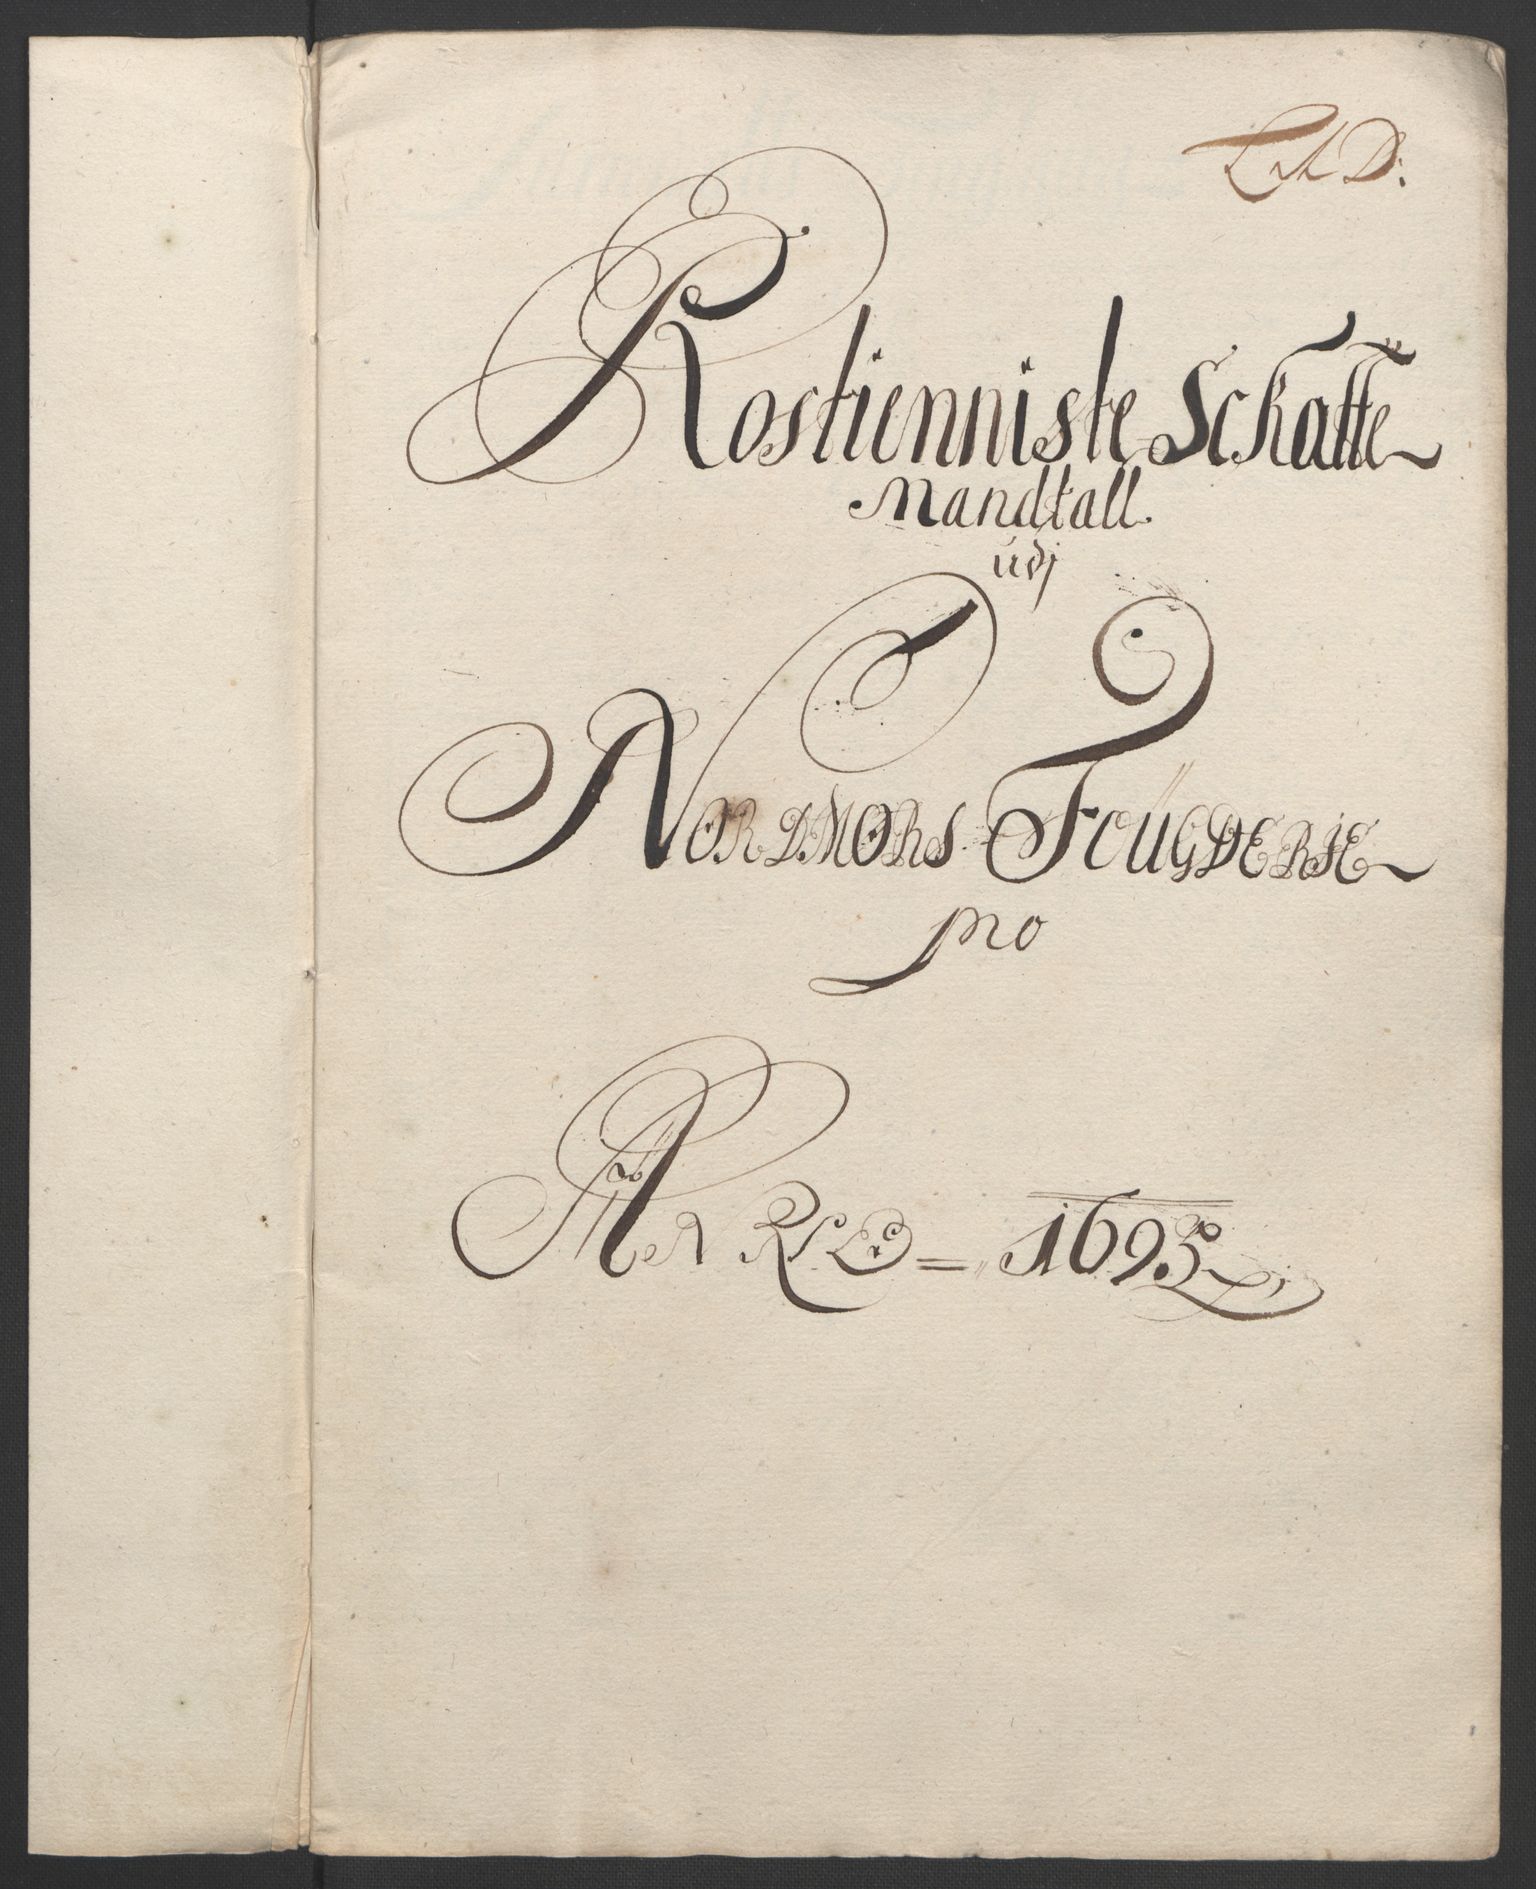 Lit D:
Rostienniste Schatte
Mandtall
udj
NORDMØRS FOUGDERIE
pro
AN̄O 1695